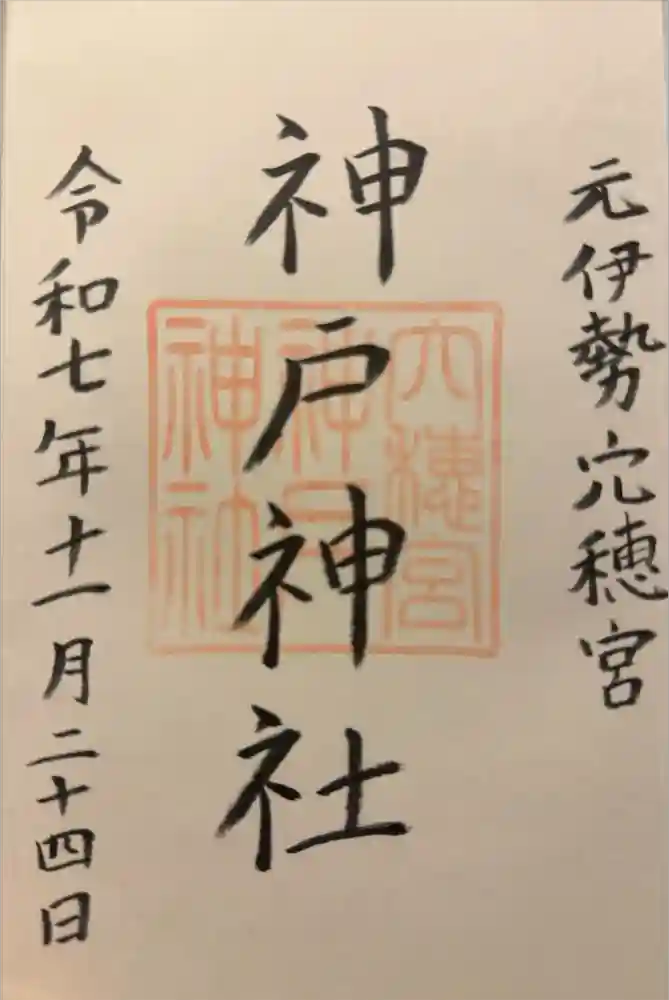 元伊勢穴穂宮
神戸神社
穴穂宮
神戸
神社
令和七年十一月二十四日